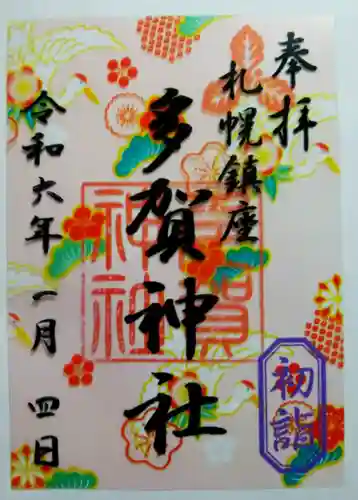 奉拝
札幌鎮座
多賀神社
多賀神社
令和六年一月四日
初詣